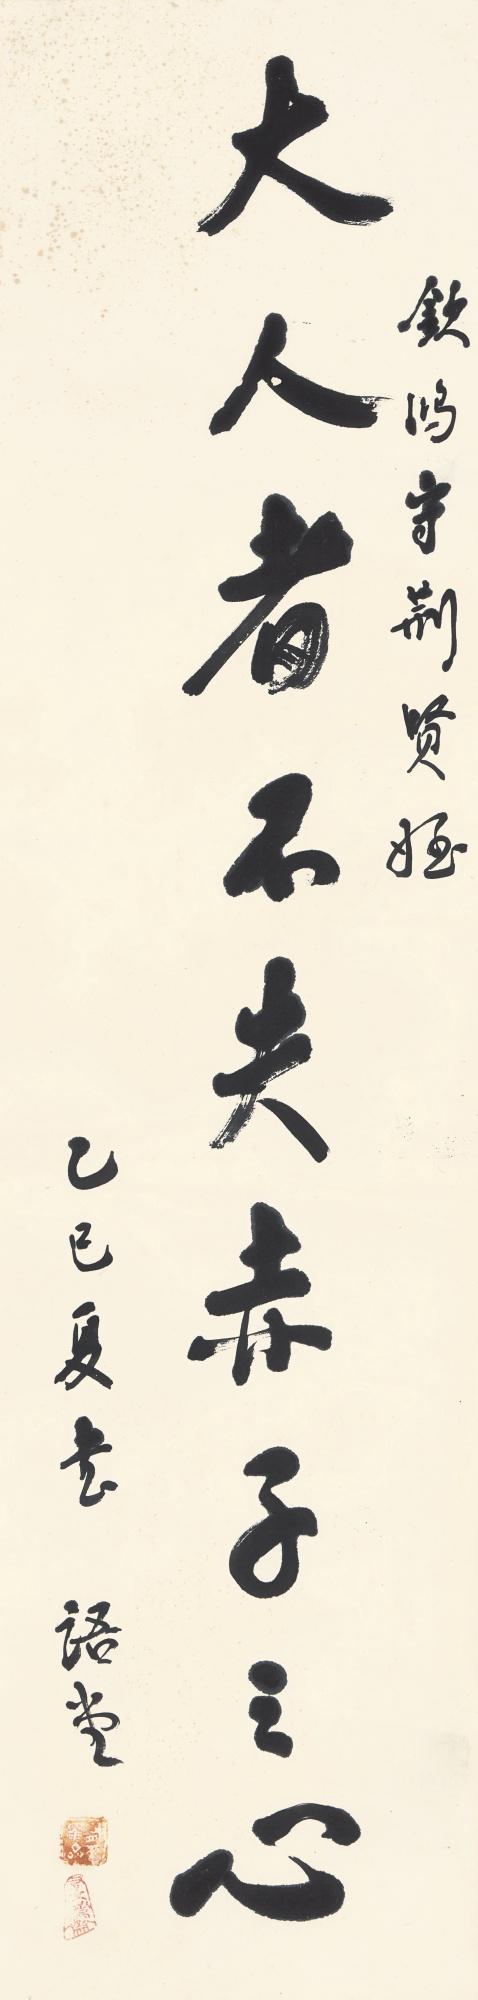 欽鴻守荆贤姪
大人者不失赤子之心
乙巳夏书 語堂